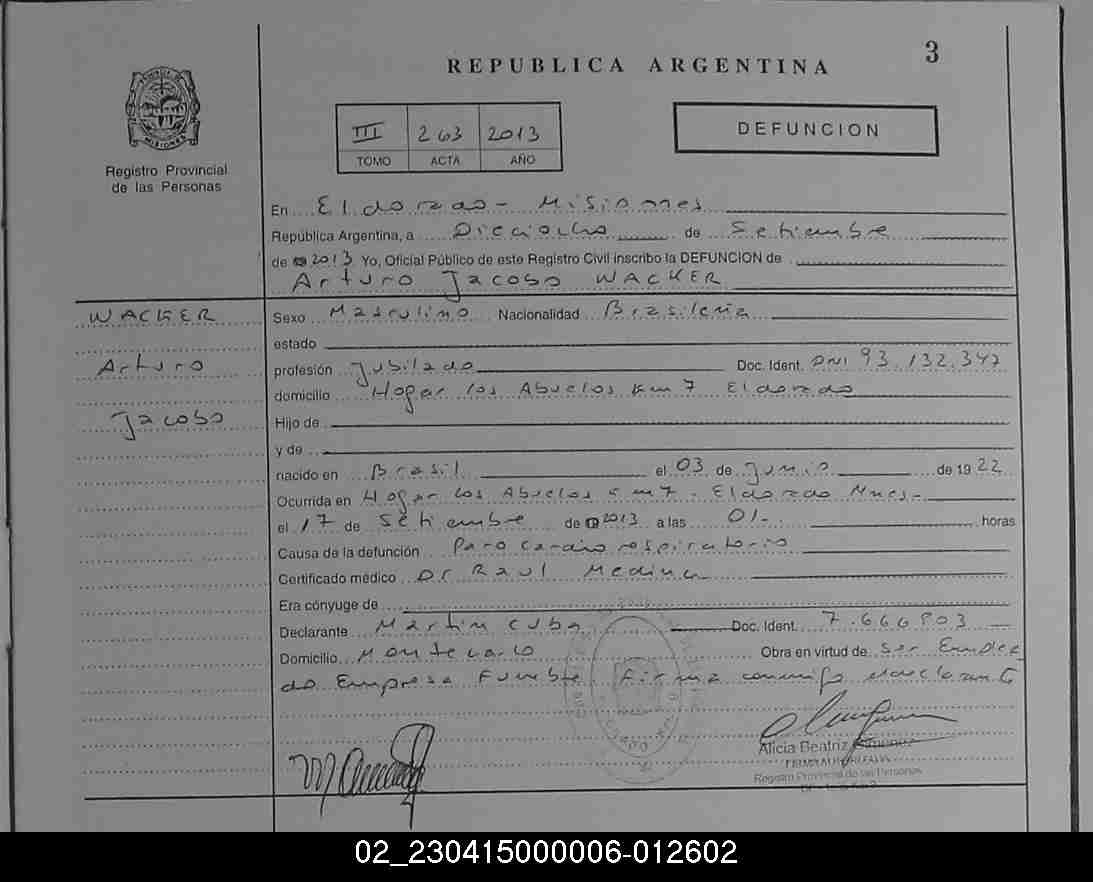 3
REPUBLICA ARGENTINA
MISIONES
Registro Provincial
de las Personas
III 263 2013
TOMO ACTA AÑO
DEFUNCION
En Eldorado - Misiones
República Argentina, a Dieciocho de Setiembre
de 2013 Yo, Oficial Público de este Registro Civil inscribo la DEFUNCION de
Arturo Jacobo WACKER
WACKER
Arturo
Jacobo
Sexo Masculino Nacionalidad Brasileña
estado
profesión Jubilado Doc. Ident. DNI 93.132.347
domicilio Hogar los Abuelos km 7 Eldorado
Hijo de
y de
nacido en Brasil el 03 de Junio de 1922
Ocurrida en Hogar los Abuelos km 7. Eldorado Mnes-
el 17 de Setiembre de 2013 a las 01- horas
Causa de la defunción Paro cardio respiratorio
Certificado médico Dr Raul Medina
Era cónyuge de
Declarante Martin Cuba Doc. Ident. 7.666803
Domicilio Montecarlo Obra en virtud de Ser Emplea
do Empresa Funebre. Firma conmigo el declarante
Alicia Beatriz Gimenez
Registro Provincial de las Personas
02_230415000006-012602